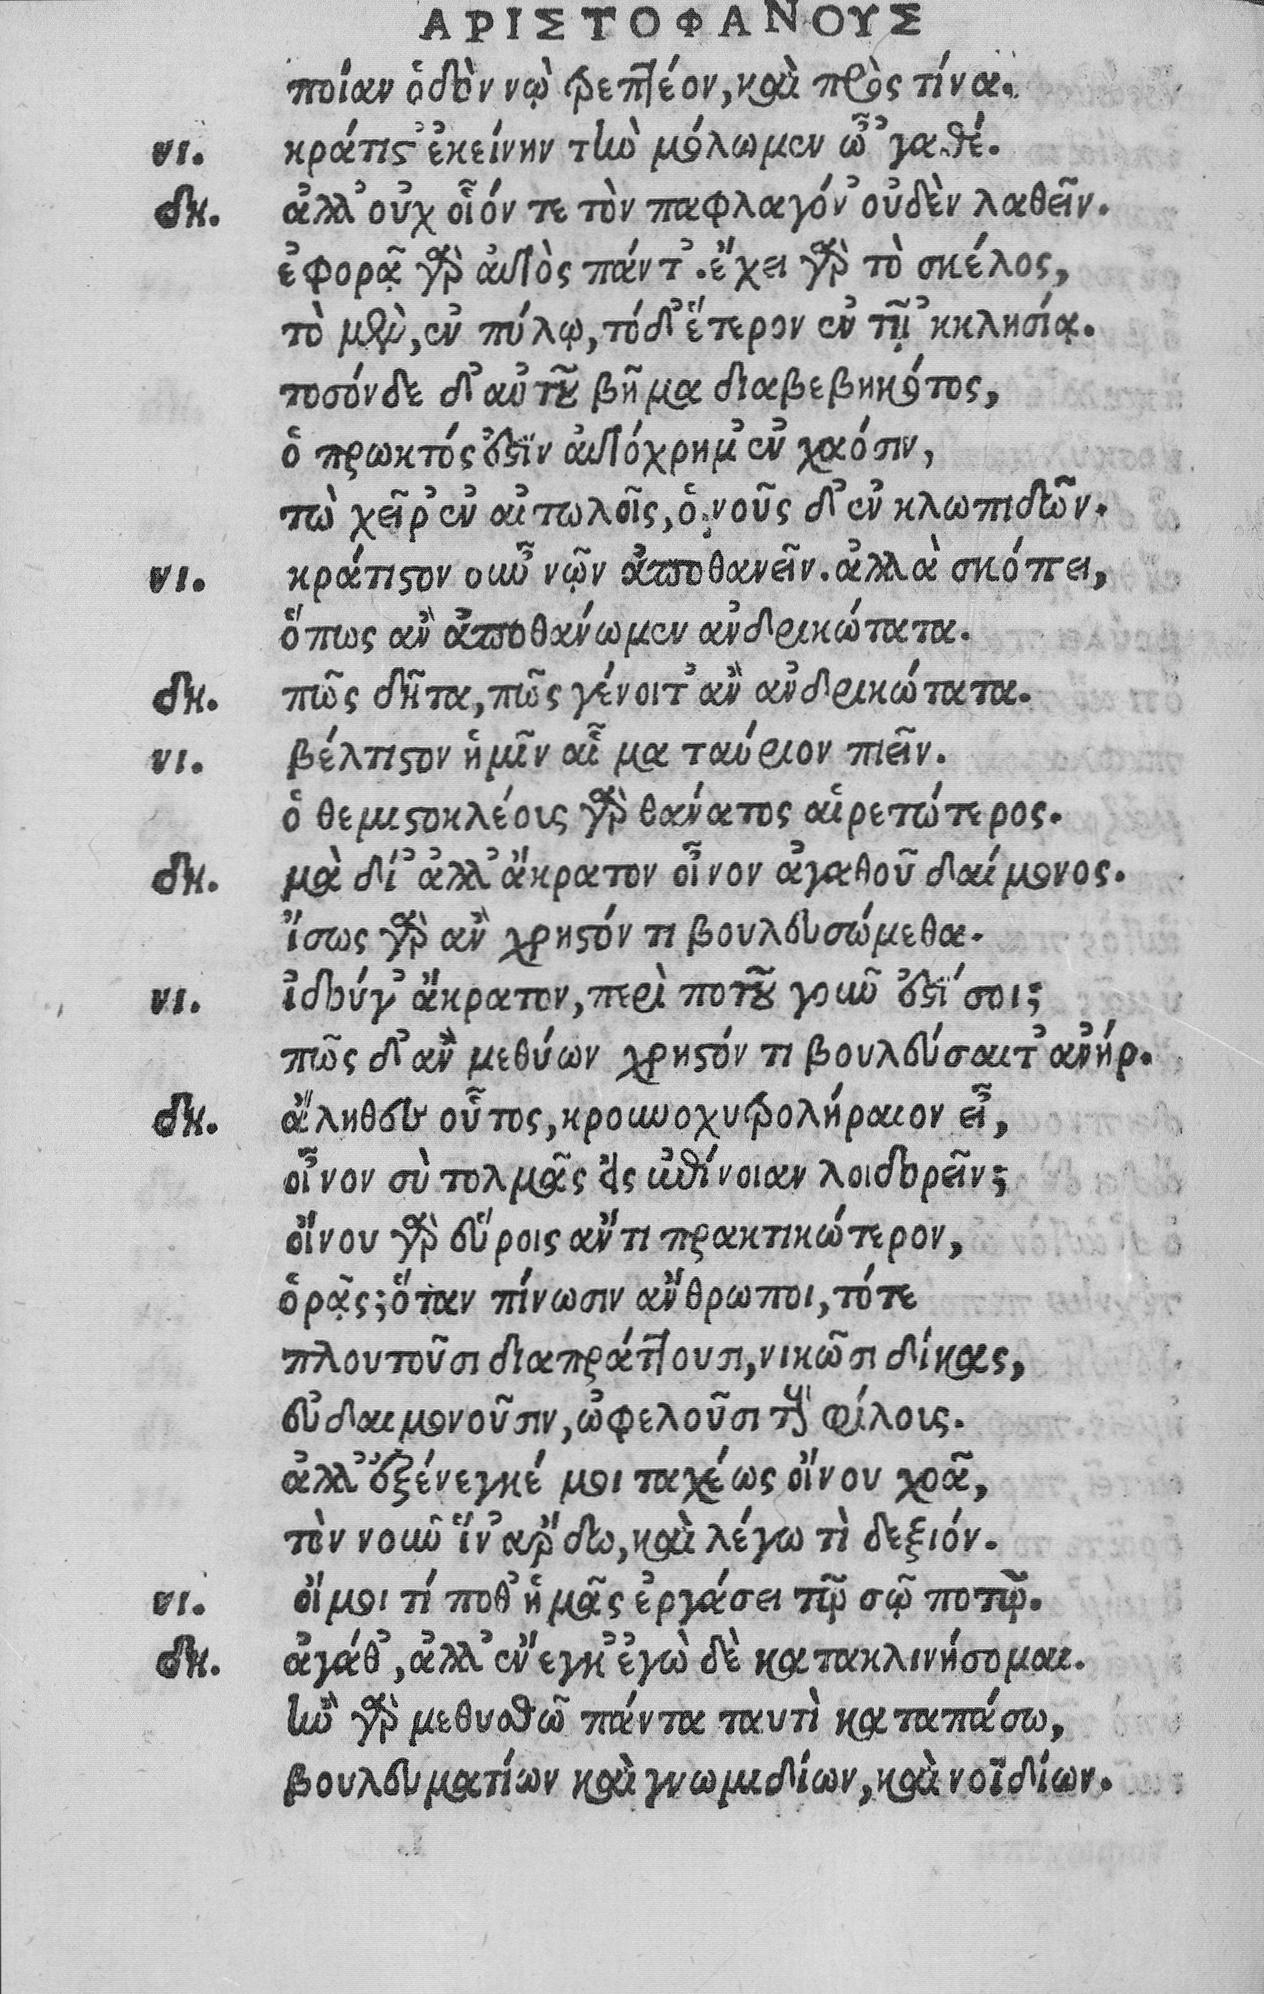 ΑΡΙΣΤΟΦΑΝΟΥΣ
ποίαν ὁδὸν νῲ τρεπτέον, καὶ πρὸς τίνα.
νι. κράτιστ' ἐκείνην τὴν μόλωμεν ὦ 'γαθέ.
δη. ἀλλ' οὐχ οἷόν τε τὸν παφλαγόν' οὐδὲν λαθεῖν.
ἐφορᾷ γὰρ αὐτὸς πάντ'. ἔχει γὰρ τὸ σκέλος,
τὸ μὲν, ἐν πύλῳ, τό δ' ἕτερον ἐν τῇ 'κκλησίᾳ.
τοσόνδε δ' αὐτοῦ βῆμα διαβεβηκότος,
ὁ πρωκτός ἐστιν αὐτόχρημ' ἐν χαόσιν,
τὼ χεῖρ' ἐν αἰτωλοῖς, ὁ νοῦς δ' ἐν κλωπιδῶν.
νι. κράτιστον οὖν νῷν ἀποθανεῖν. ἀλλὰ σκόπει,
ὅπως ἂν ἀποθάνωμεν ἀνδρικώτατα.
δη. πῶς δῆτα, πῶς γένοιτ' ἂν ἀνδρικώτατα.
νι. βέλτιστον ἡμῖν αἷμα ταύριον πιεῖν.
ὁ θεμιστοκλέοις γὰρ θάνατος αἱρετώτερος.
δη. μὰ δί' ἀλλ' ἄκρατον οἶνον ἀγαθοῦ δαίμονος.
ἴσως γὰρ ἂν χρηστόν τι βουλευσώμεθα.
νι. ἰδούγ' ἄκρατον, περὶ ποτοῦ γοῦν ἐστί σοι;
πῶς δ' ἂν μεθύων χρηστόν τι βουλεύσαιτ' ἀνήρ.
δη. ἄληθευ οὗτος, κρουνοχυτρολήραιον εἶ,
οἶνον σὺ τολμᾷς εἰς ἀπίνοιαν λοιδορεῖν;
οἴνου γὰρ εὕροις ἄν τι πρακτικώτερον,
ὁρᾷς; ὅταν πίνωσιν ἄνθρωποι, τότε
πλουτοῦσι διαπράττουσι, νικῶσι δίκας,
εὐδαιμονοῦσιν, ὠφελοῦσι τοὺς φίλοις.
ἀλλ' ἐξένεγκέ μοι ταχέως οἴνου χοᾶ,
τὸν νοῦν ἵν' ἄρδω, καὶ λέγω τὶ δεξιόν.
νι. οἴμοι τί ποθ' ἡμᾶς ἐργάσει τῷ σῷ ποτῷ.
δη. ἀγάθ', ἀλλ' ἔνεγκ' ἐγὼ δὲ κατακλινήσομαι.
ἢν γὰρ μεθυσθῶ πάντα ταυτὶ καταπάσω,
βουλευματίων καὶ γνωμιδίων, καὶ νοϊδίων.